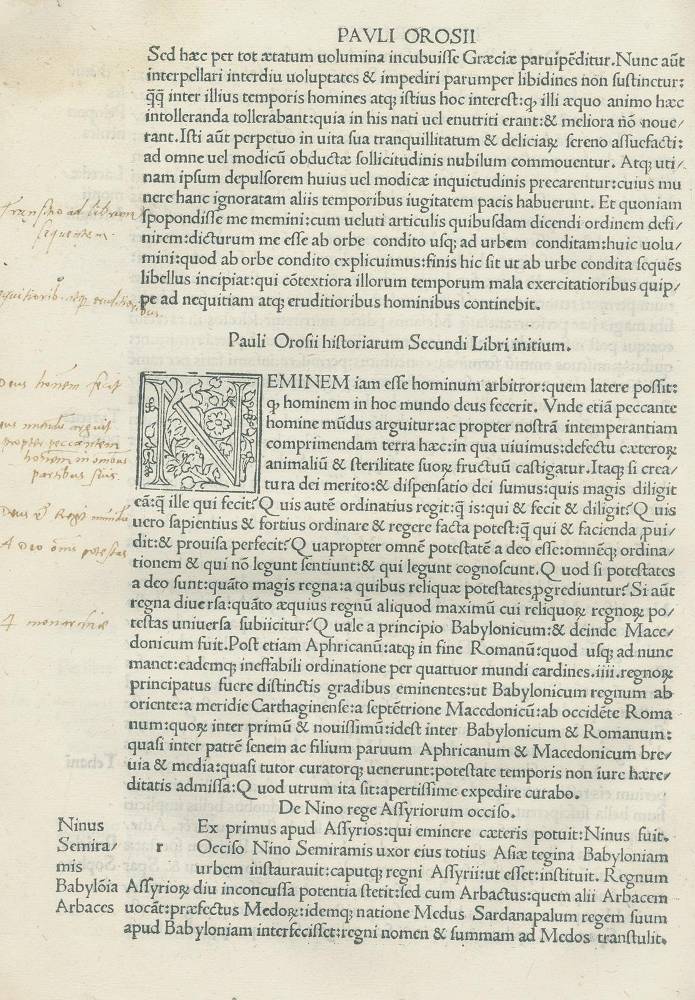 PAVLI OROSII
Sed hæc per tot ætatum uolumina incubuisse Græciæ paruipēditur. Nunc aūt
interpellari interdiu uoluptates & impediri parumper libidines non sustinetur:
q̄q̄ inter illius temporis homines atq; istius hoc interest: q, illi æquo animo hæc
intolleranda tollerabant: quia in his nati uel enutriti erant: & meliora nō noue/
rant. Isti aūt perpetuo in uita sua tranquillitatum & deliciaꝝ sereno assuefacti:
ad omne uel modicū obductæ sollicitudinis nubilum commouentur. Atq; uti/
nam ipsum depulsorem huius uel modicæ inquietudinis precarentur: cuius mu
nere hanc ignoratam aliis temporibus iugitatem pacis habuerunt. Et quoniam
spopondisse me memini: cum ueluti articulis quibusdam dicendi ordinem defi/
nirem: dicturum me esse ab orbe condito usq; ad urbem conditam: huic uolu/
mini: quod ab orbe condito explicuimus: finis hic sit ut ab urbe condita sequēs
libellus incipiat: qui cōtextiora illorum temporum mala exercitatioribus quip/
pe ad nequitiam atq; eruditioribus hominibus continebit.
Transitio ad librum
sequentem.
Pauli Orosii historiarum Secundi Libri initium.
NEMINEM iam esse hominum arbitror: quem latere possit:
q, hominem in hoc mundo deus fecerit. Vnde etiā peccante
homine mūdus arguitur: ac propter nostrā intemperantiam
comprimendam terra hæc: in qua uiuimus: defectu cæteroꝝ
animaliū & sterilitate suoꝝ fructuū castigatur. Itaq; si crea/
tura dei merito: & dispensatio dei sumus: quis magis diligit
eā: q̄ ille qui fecit? Q uis autē ordinatius regit: q̄ is: qui & fecit & diligit? Q uis
uero sapientius & fortius ordinare & regere facta potest: q̄ qui & facienda ꝓui/
dit: & prouisa perfecit? Q uapropter omnē potestatē a deo esse: omnēq; ordina/
tionem & qui nō legunt sentiunt: & qui legunt cognoscunt. Q uod si potestates
a deo sunt: quāto magis regna: a quibus reliquæ potestates ꝓgrediuntur? Si aūt
regna diuersa: quāto æquius regnū aliquod maximū cui reliquoꝝ regnoꝝ po/
testas uniuersa subiicitur? Q uale a principio Babylonicum: & deinde Mace/
donicum fuit. Post etiam Aphricanū: atq; in fine Romanū: quod usq; ad nunc
manet: eademq; ineffabili ordinatione per quattuor mundi cardines .iiii. regnoꝝ
principatus fuere distinctis gradibus eminentes: ut Babylonicum regnum ab
oriente: a meridie Carthaginense: a septētrione Macedonicū: ab occidēte Roma
num: quoꝝ inter primū & nouissimū: idest inter Babylonicum & Romanum:
quasi inter patrē senem ac filium paruum Aphricanum & Macedonicum bre/
uia & media: quasi tutor curatorq; uenerunt: potestate temporis non iure hære/
ditatis admissa: Q uod utrum ita sit: apertissime expedire curabo.
Deus hominem fecit
propter peccantem
hominem in omnibus
partibus suis.
A Deo omnis potestas
4 monarchiæ
De Nino rege Assyriorum occiso.
Ninus
Semira/
mis
Babylōia
Arbaces
r Ex primus apud Assyrios: qui eminere cæteris potuit: Ninus fuit.
Occiso Nino Semiramis uxor eius totius Asiæ tegina Babyloniam
urbem instaurauit: caputq; regni Assyrii: ut esset: instituit. Regnum
Assyrioꝝ diu inconcussa potentia stetit: sed cum Arbactus: quem alii Arbacem
uocāt: præfectus Medoꝝ: idemq; natione Medus Sardanapalum regem suum
apud Babyloniam interfecisset: regni nomen & summam ad Medos transtulit.